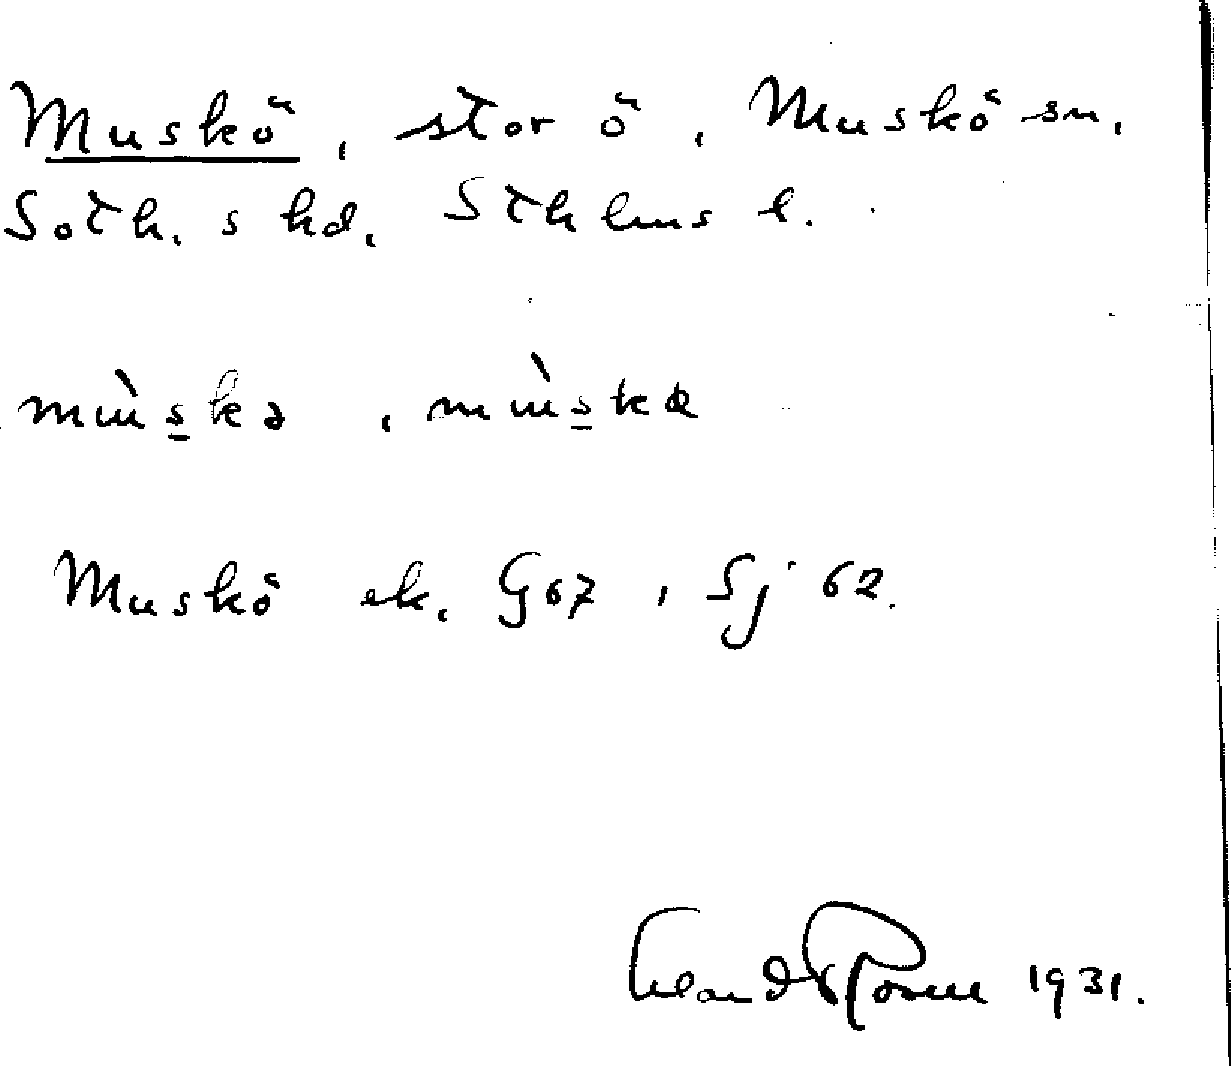 Muskö, stor ö, Muskö sn,
Soth. s hd, Sthlms l.
mùskə, mùska
Muskö ek. G67, Sj 62.
Erland Rosell 1931.